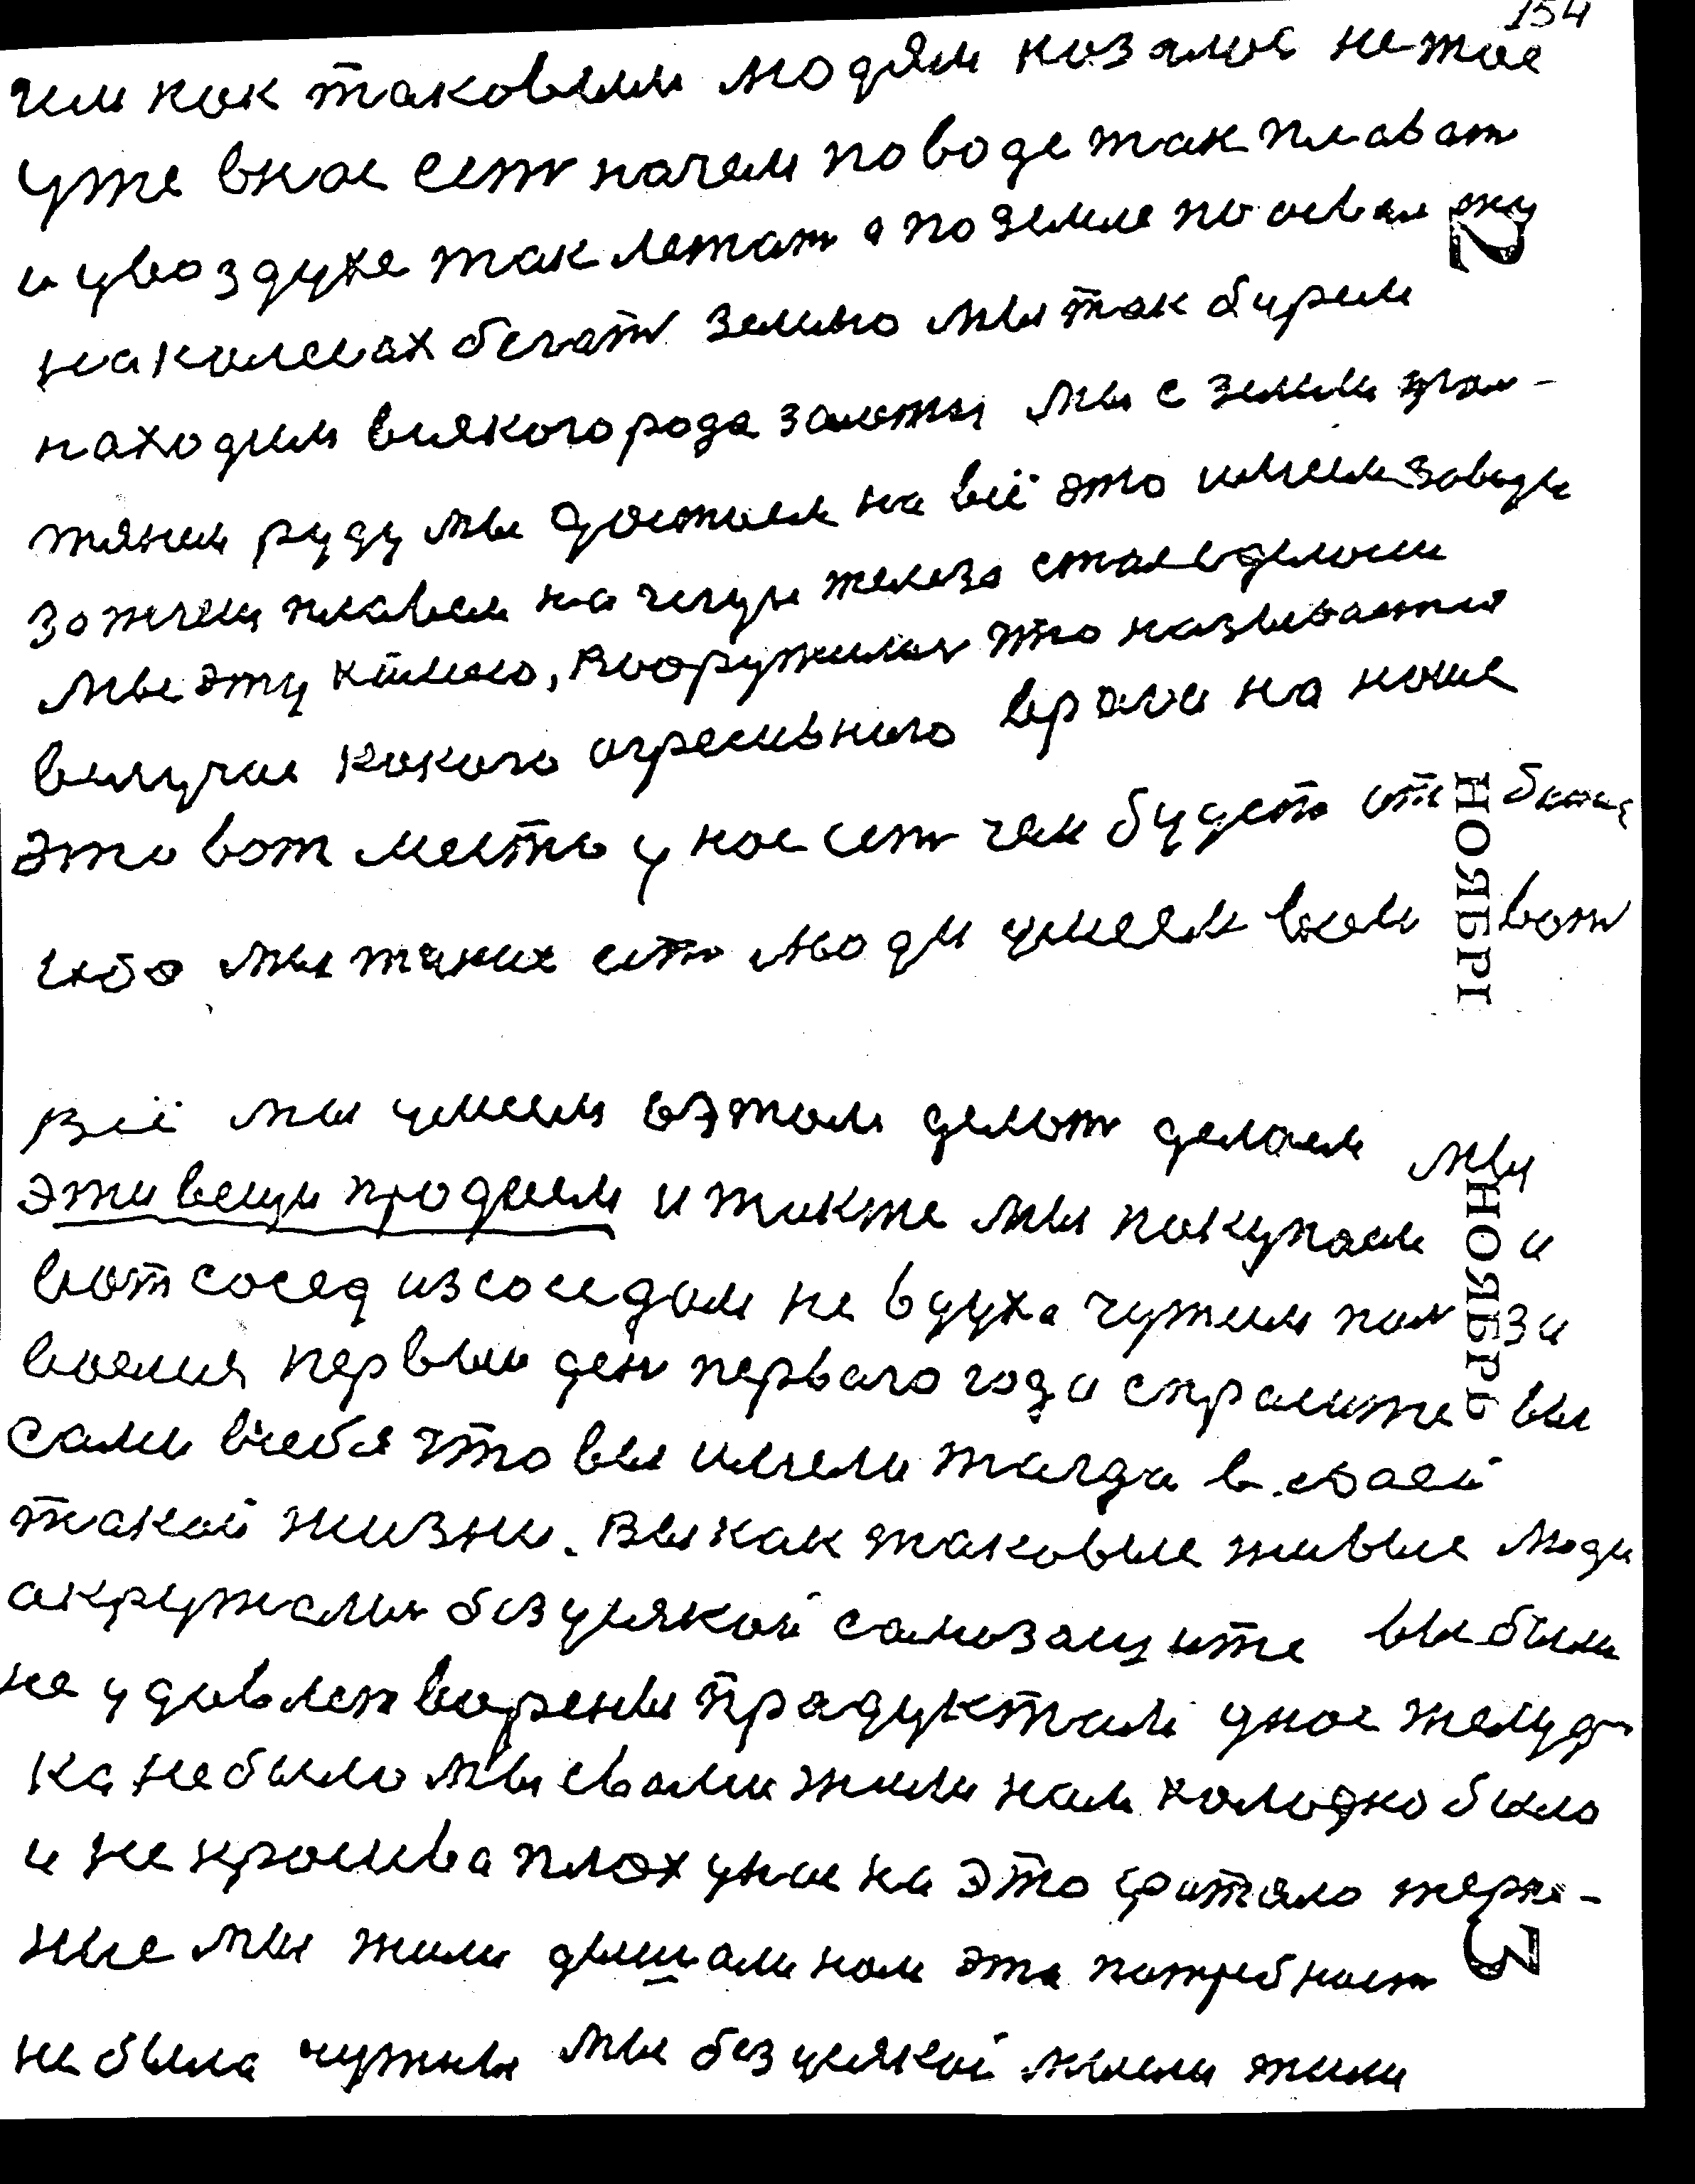 154
чем как таковым людям казалос не тое
уже внас ест начем по воде так плават
и увоздухе так летат а по земле по
на колесах бегат землю мы так бурем
находим всякого рода залоты мы с земли
тянем руду мы достаем на всё это имеем заводы
плавем на чугун железо стале делаем
мы эту, вооружилис это называится
вслучае какого агресивного врага на наше
это вот место у нас ест чем будет
ибо мы таких ест люди умеем всем вот
2
НОЯБРЬ
всё мы умеем вэтом делат делаем мы
эти вещи продаем и также мы покупаем и
вот сосед изсоседом не вдуха чужим
первыи ден первого года спросите вы
сами всебя что вы имели тагда в своей
такой жизни. вы как таковые живые люди
акружалис без усякой самозащите вы были
не удовлетворены прадуктами унас желуд-
ка небыло мы свами жили нам холодно было
и не плох унас на это терпе-
ние мы жили дышали нам эта потребност
не была чужны мы без усякой мысли жили
НОЯБРЬ
3